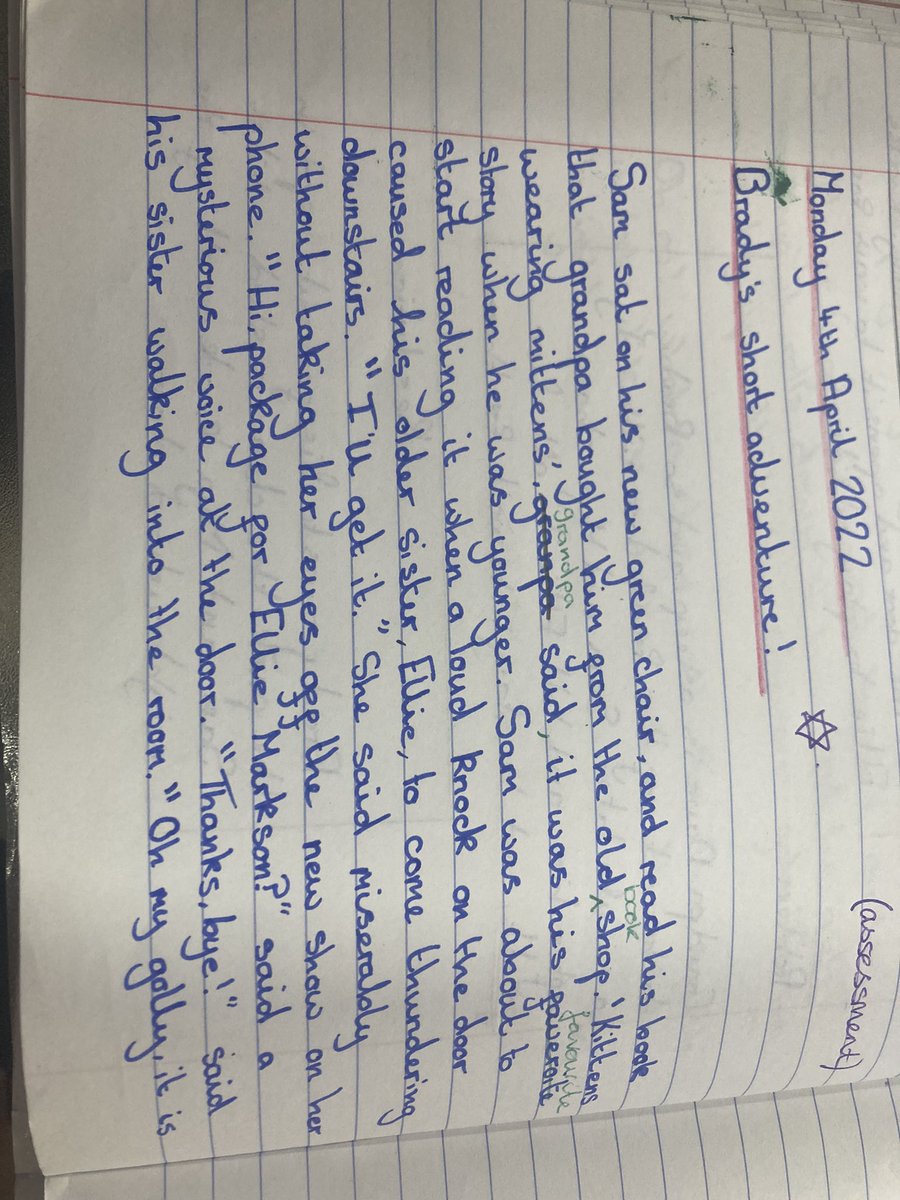 (assessment)
Monday 4th April 2022
Brady's short adventure!
Sam sat on his new green chair, and read his book
that grandpa bought him from the old ^ book shop. 'Kittens
wearing mittens', grampa grandpa said, it was his faveroite favourite
story when he was younger. Sam was about to
start reading it when a loud knock on the door
caused his older sister, Ellie, to come thundering
downstairs. "I'll get it." She said miseraldy
without taking her eyes off the new show on her
phone. "Hi, package for Ellie Markson?" said a
mysterious voice at the door. "Thanks, bye!" said
his sister walking into the room. "Oh my golly, it is